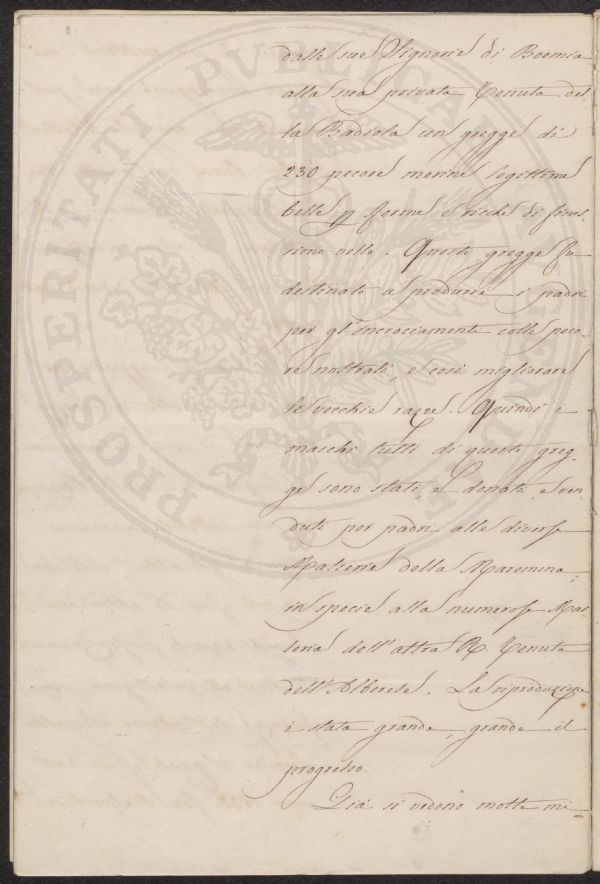 dalle sue Signorie di Boemia
alla sua privata Tenuta del
la Badiola un gregge di
230 pecore merine legittime
belle p forme e ricche di finis
simo vello. Questo gregge fu
destinato a produrre i padri
per gl'incrociamente colle peco-
re nostrali, e così migliorare
le vecchie razze. Quindi i
maschi tutti di questo greg-
ge sono stati, e donati, e ven
duti per padri alle diverse
Masserie della Maremma,
in specie alla numerosa Mas
seria dell'altra R. Tenuta
dell'Alberese. La riproduzione
è stata grande, grande il
progresso.
Già si vedono molte mi-
PROSPERITATI PVBLICAE AVGENDAE